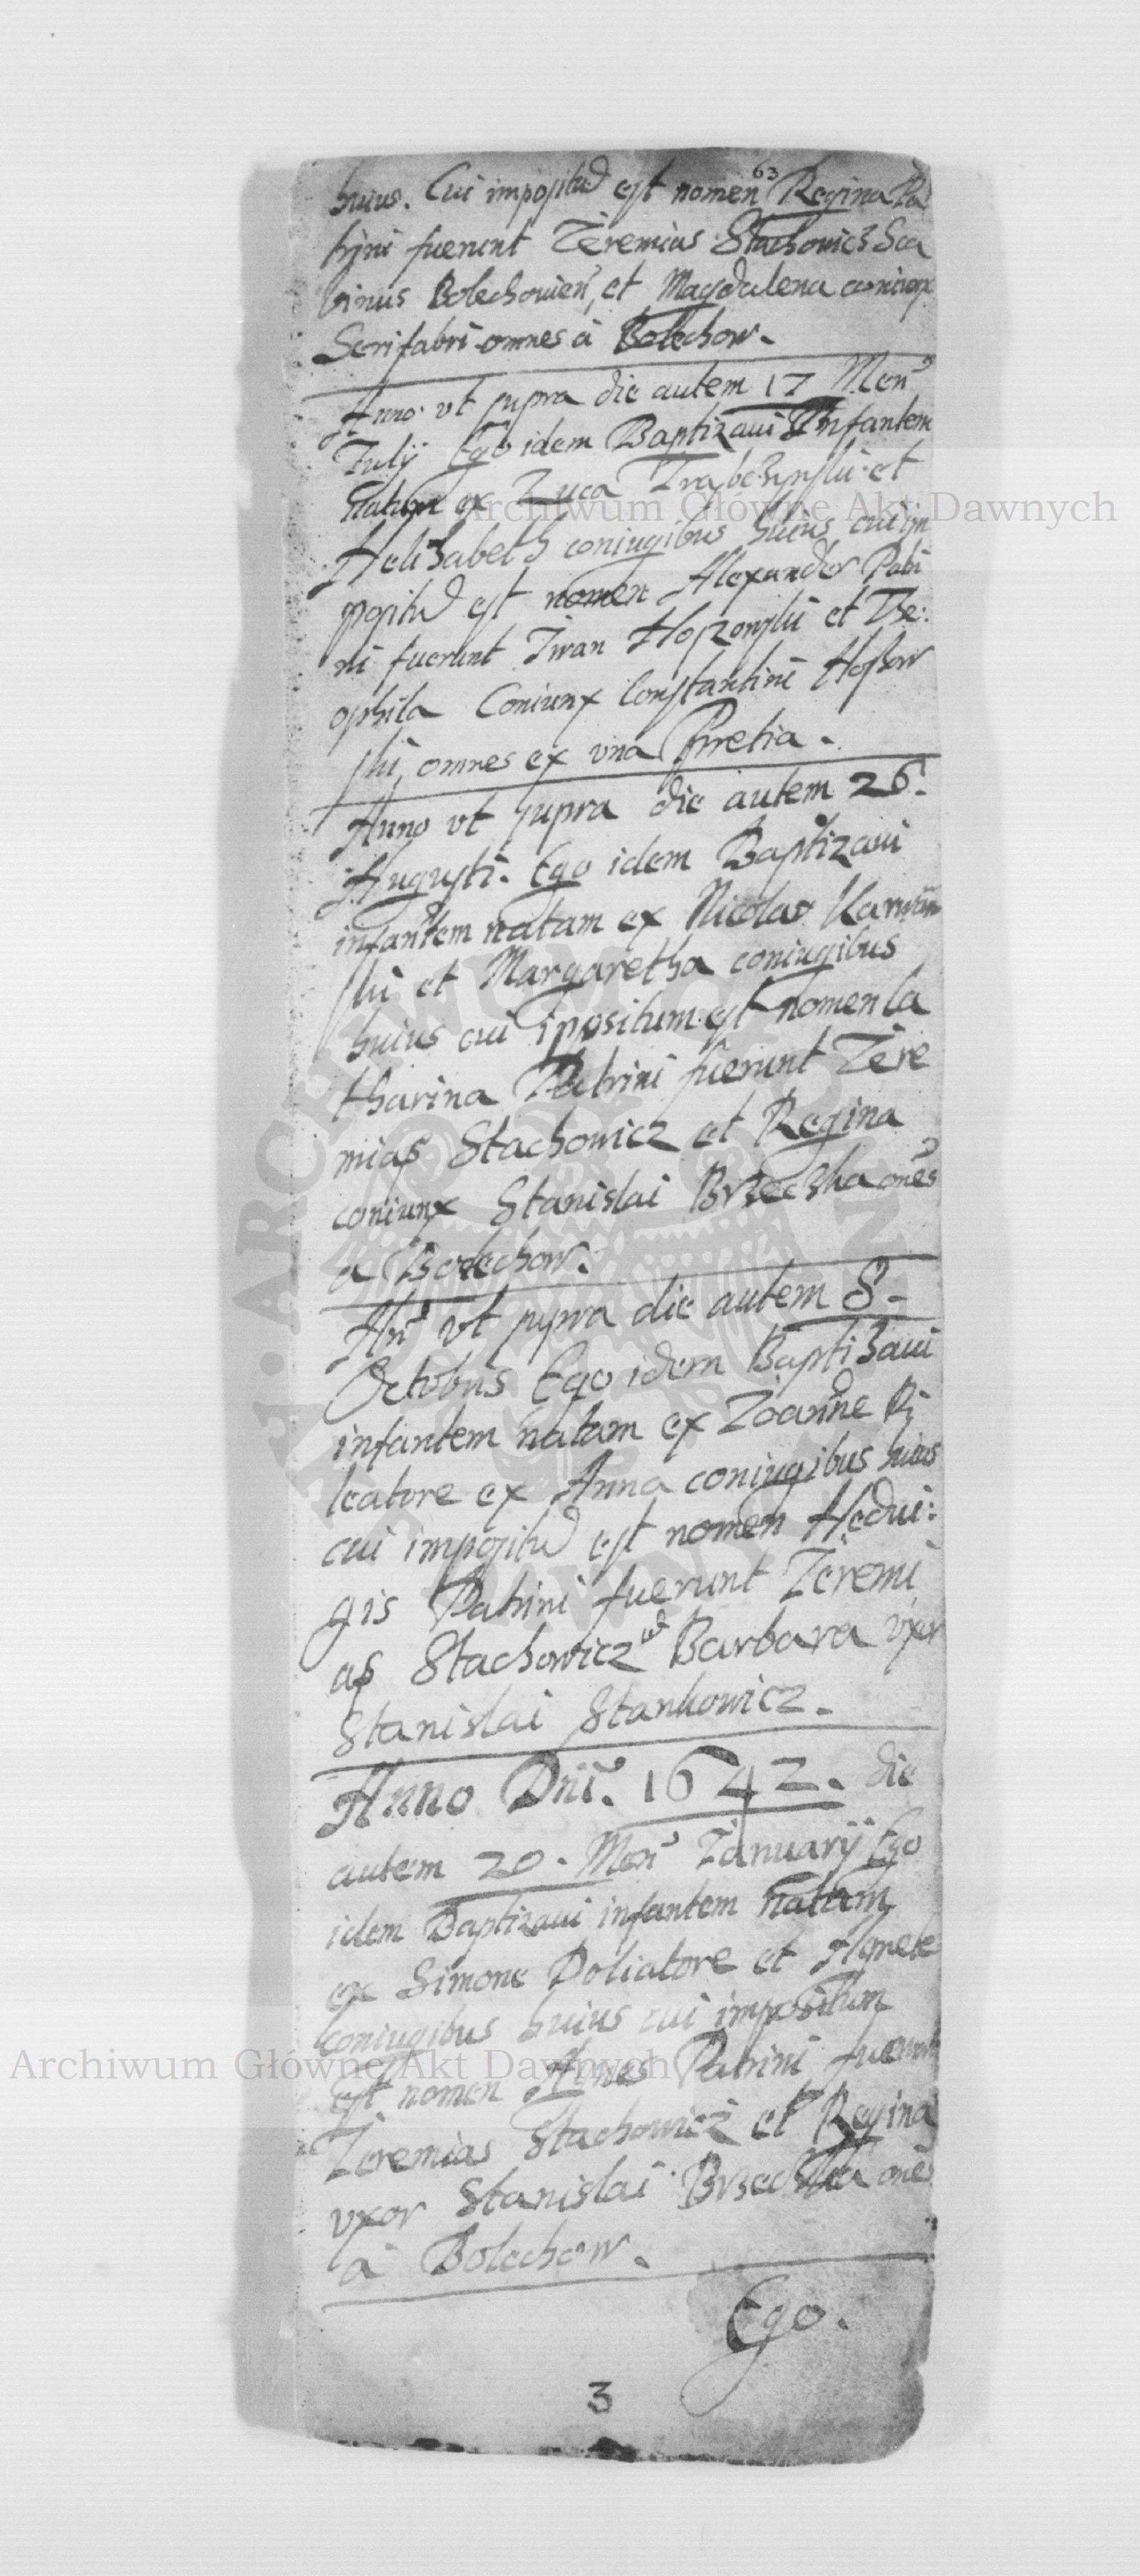 63
huius. Cui impositū est nomen Regina Pa
trini fuerunt Ieremias Stachowicz Sca
binus Bolechowien, et Magdalena coniunx
Serifabri omnes à Bolechow.
Anno vt supra die autem 17 Men
Iulij Ego idem Baptizaui Infantem
natum ex Luca et
Helizabeth coniugibus huius cui im
positū est nomen Alexander Patri
ni fuerunt Iwan et The:
ophila Coniunx Constantini Hossow
ski, omnes ex vna
Anno vt supra die autem 26.
Augusti. Ego idem Baptizaui
infantem natam ex Nicolao
ski et Margaretha coniugibus
huius cui ipositum est nomen Ca
tharina Patrini fuerunt Iere
mias Stachowicz et Regina
coniunx Stanislai Brzeczka oēs
a Bolechow.
Añ vt supra die autem 8-
Octobris Ego idem Baptizaui
infantem natam ex Ioanne Pi
leatore ex Anna coniugibus huius
cui impositū est nomen Hedui:
gis Patrini fuerunt Ieremi
as Stachowicz et Barbara vxor
Stanislai Stankowicz.
Anno Dñi. 1642. die
autem 20. Men Ianuarij Ego
idem Baptizaui infantem natam
ex Simone Doliatore et Agnete
Coniugibus huius cui impositum
est nomen Agnes Patrini fuerunt
Ieremias Stachowicz et Regina
vxor Stanislai Brzeczka oēs
à Bolechow.
Ego.
3
Archiwum Główne Akt Dawnych
Archiwum Główne Akt Dawnych